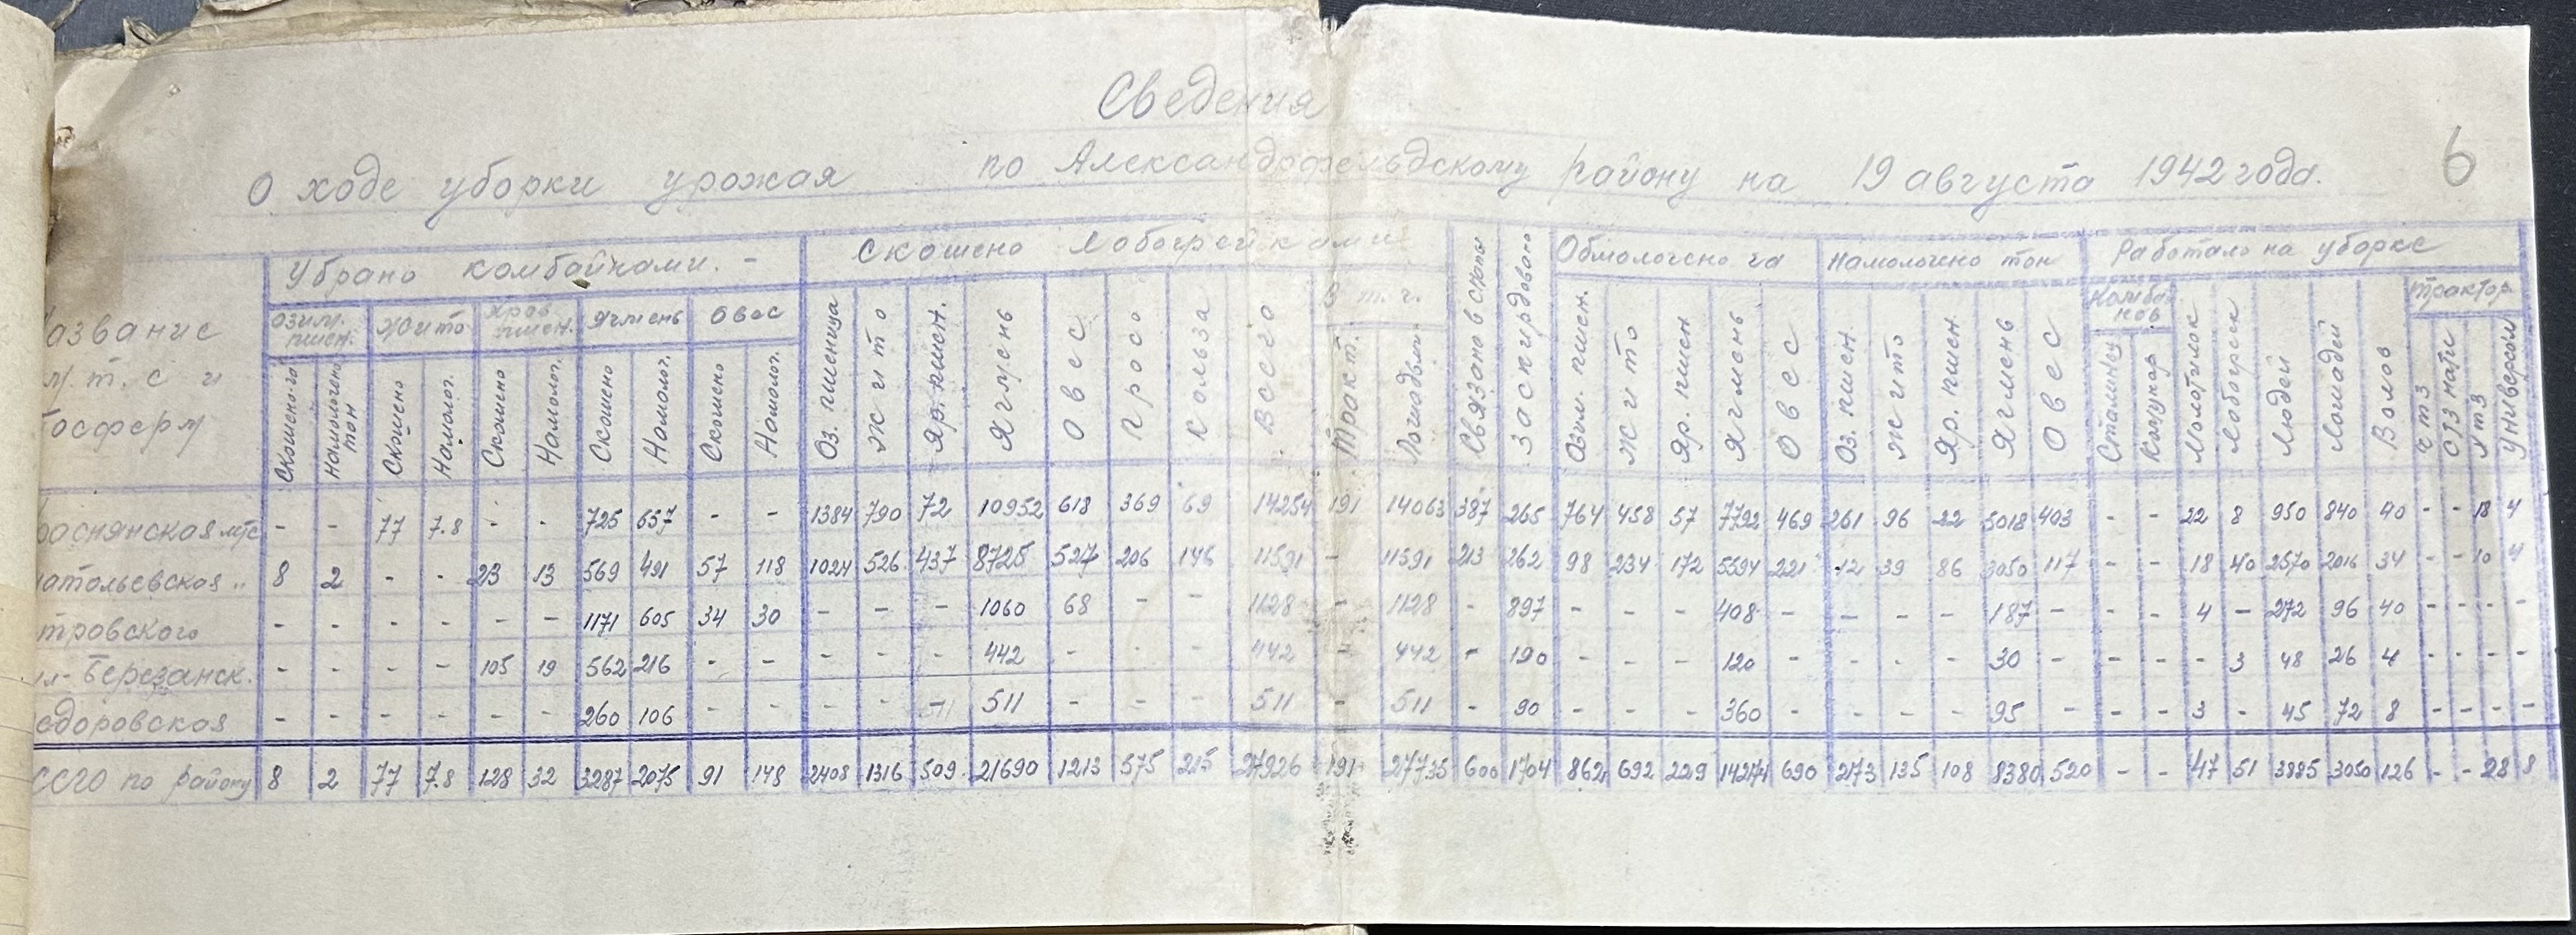 Сведения
О ходе уборки урожая по Александрофельдскому району на 19 августа 1942 года.
6
Название м.т.с и Госферм
Убрано комбайнами. -
Скошено Лобогрейками
Связано в снопы
Заскирдовано
Обмолочено га
Намолочено тон
Работало на уборке
Озим. пшен. Жито Яров. пшен. Ячмень Овес
В т.ч.
Комбайнов
Трактор.
Скошено га Намолочено тон Скошено Намолот. Скошено Намолот. Скошено Намолот. Скошено Намолот. Оз. пшеница Жито Яр. пшен. Ячмень Овес Просо Кольза Всего Тракт. Озим. пшен. Жито Яр. пшен Ячмень Овес Оз. пшен. Жито Яр. пшен Ячмень Овес Молотилок Лобогреек Людей Лошадей Волов ЧТЗ ХТЗ Универсал
раснянская мтс - - 77 7.8 - - 725 657 - - 1384 790 72 10952 618 369 69 14254 191 14063 387 265 764 458 57 7792 469 261 96 22 5018 403 - - 22 8 950 840 40 - - 18 4
натольевская " 8 2 - - 23 13 569 491 57 118 1024 526 437 8725 527 206 146 11591 - 11591 213 262 98 234 172 5594 221 12 39 86 3050 117 - - 18 40 2570 2016 34 - - 10 4
тровского - - - - - - 1171 605 34 30 - - - 1060 68 - - 1128 - 1128 - 897 - - - 408 - - - - 187 - - - 4 - 272 96 40 - - - -
л-Березанск. - - - - 105 19 562 216 - - - - - 442 - - - 442 - 442 - 190 - - - 120 - - - - 30 - - - - 3 48 26 4 - - - -
едоровская - - - - - - 260 106 - - - - 511 511 - - - 511 - 511 - 90 - - - 360 - - - - 95 - - - 3 - 45 72 8 - - - -
сего по району 8 2 77 7.8 128 32 3287 2075 91 148 2408 1316 509 21690 1213 575 215 27926 191 27735 600 1704 862 692 229 14274 690 2173 135 108 8380 520 - - 47 51 3885 3050 126 - - 28 8